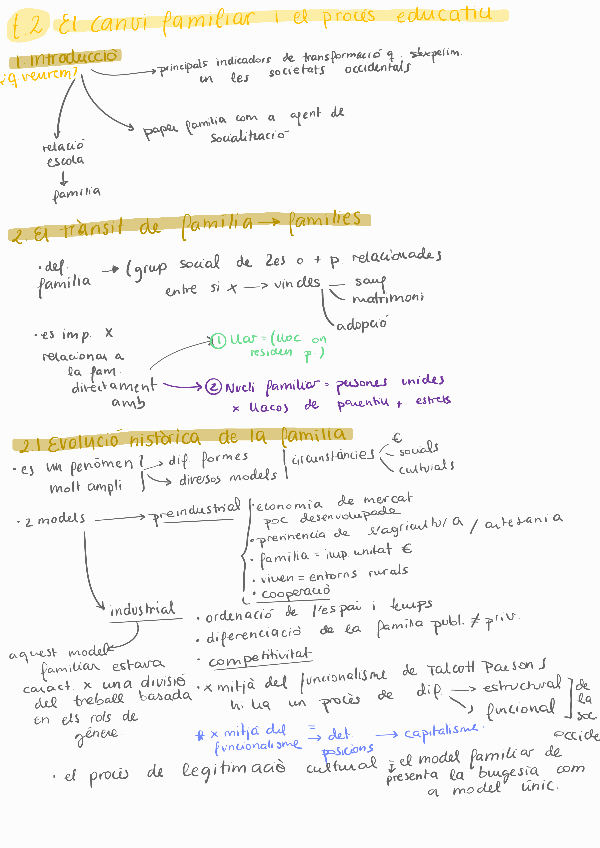 t.2 El canvi familiar i el procés educatiu
1. Introducció
¿q veurem?
principals indicadors de transformació q. s'expelim.
en les societats occidentals
paper família com a agent de
socialització
relació
escola
família
2. El trànsit de família → famílies
· def.
família → (grup social de 2es o + p. relacionades
entre si x → vincles
sang
matrimoni
adopció
· es imp. x
relacionar a
la fam.
directament
amb
① Llar = (lloc on
residen p.)
② Nucli familiar = persones unides
x llaços de parentiu + estrets
2.1 Evolució històrica de la família
· es un penòmen
molt ampli
→ dif. formes
→ diversos models
circunstàncies
€
socials
culturals
· 2 models → preindustrial
· economia de mercat
poc desenvolupada
· preminencia de l'agricultura / artesania
· família = imp. unitat €
· viuen = entorns rurals
· cooperació
industrial
· ordenació de l'espai i temps
· diferenciació de la família publ. ≠ priv.
· competitivitat
aquest model
familiar estava
caract. x una divisió
del treball basada
en els rols de
gènere
· x mitjà del funcionalisme de Talcott Parsons
hi ha un procés de dif. → estructural
funcional
de
la
soc
occide
* x mitjà del = 
funcionalisme → det. → capitalisme.
posicions
· el procés de legitimació cultural = el model familiar de
presenta la burgesia com
a model únic.